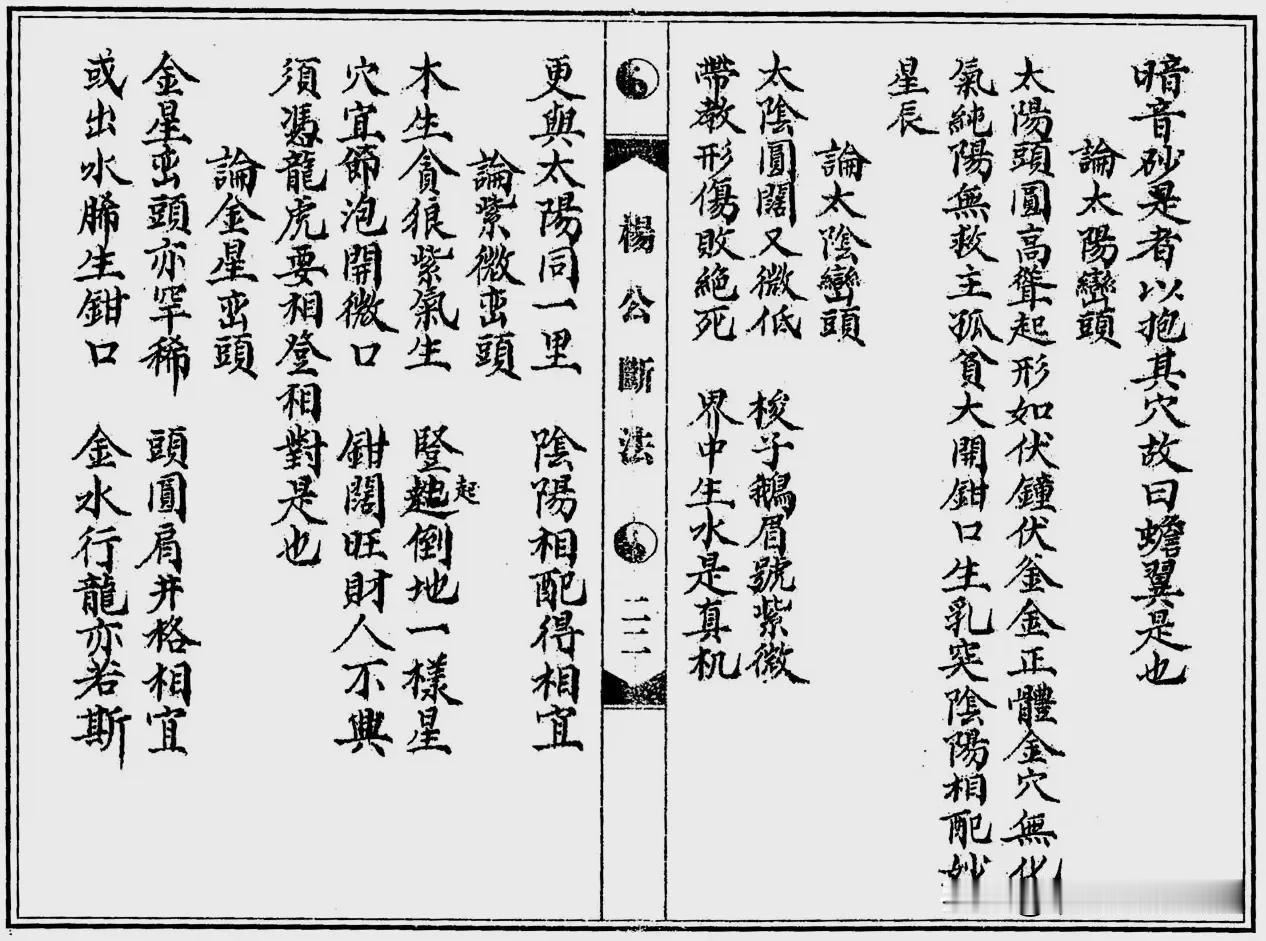 暗音砂是者以抱其穴故曰蟾翼是也
論太陽巒頭
太陽頭圓高聳起形如伏鐘伏釜金正體金穴無化
氣純陽無救主孤貧大開鉗口生乳突陰陽相配妙
星辰
論太陰巒頭
太陰圓闊又微低 梭子鵝眉號紫微
帶教形傷敗絕死 界中生水是真机
楊公斷法 二二
更與太陽同一里 陰陽相配得相宜
論紫微峦頭
木生貪狼紫氣生 豎起倒地一樣星
起
穴宜節泡開微口 鉗闊旺財人不興
須馮龍虎要相登相對是也
論金星峦頭
金星峦頭亦罕稀 頭圓肩井格相宜
或出水腨生鉗口 金水行龍亦若斯